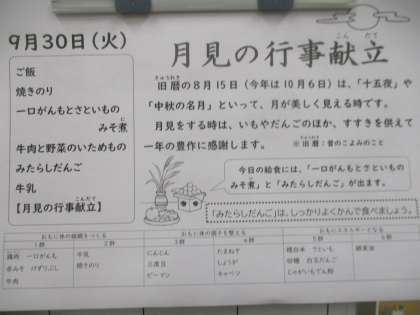 9月30日(火)
ご飯
焼きのり
一口がんもとさといもの
みそ煮
牛肉と野菜のいためもの
みたらしだんご
牛乳
【月見の行事献立】
月見の行事献立
旧暦の8月15日(今年は10月6日)は、「十五夜」や
「中秋の名月」といって、月が美しく見える時です。
月見をする時は、いもやだんごのほか、すすきを供えて
一年の豊作に感謝します。
※旧暦:昔のこよみのこと
今日の給食には、「一口がんもとさといもの
みそ煮」と「みたらしだんご」が出ます。
「みたらしだんご」は、しっかりよくかんで食べましょう。
おもに体の組織をつくる
おもに体の調子を整える
おもにエネルギーとなる
1群 2群 3群 4群 5群 6群
鶏肉 一口がんも
赤みそ けずりぶし
牛肉
牛乳
焼きのり
にんじん
三度豆
ピーマン
たまねぎ
しょうが
キャベツ
精白米 さといも
砂糖 白玉だんご
じゃがいもでん粉